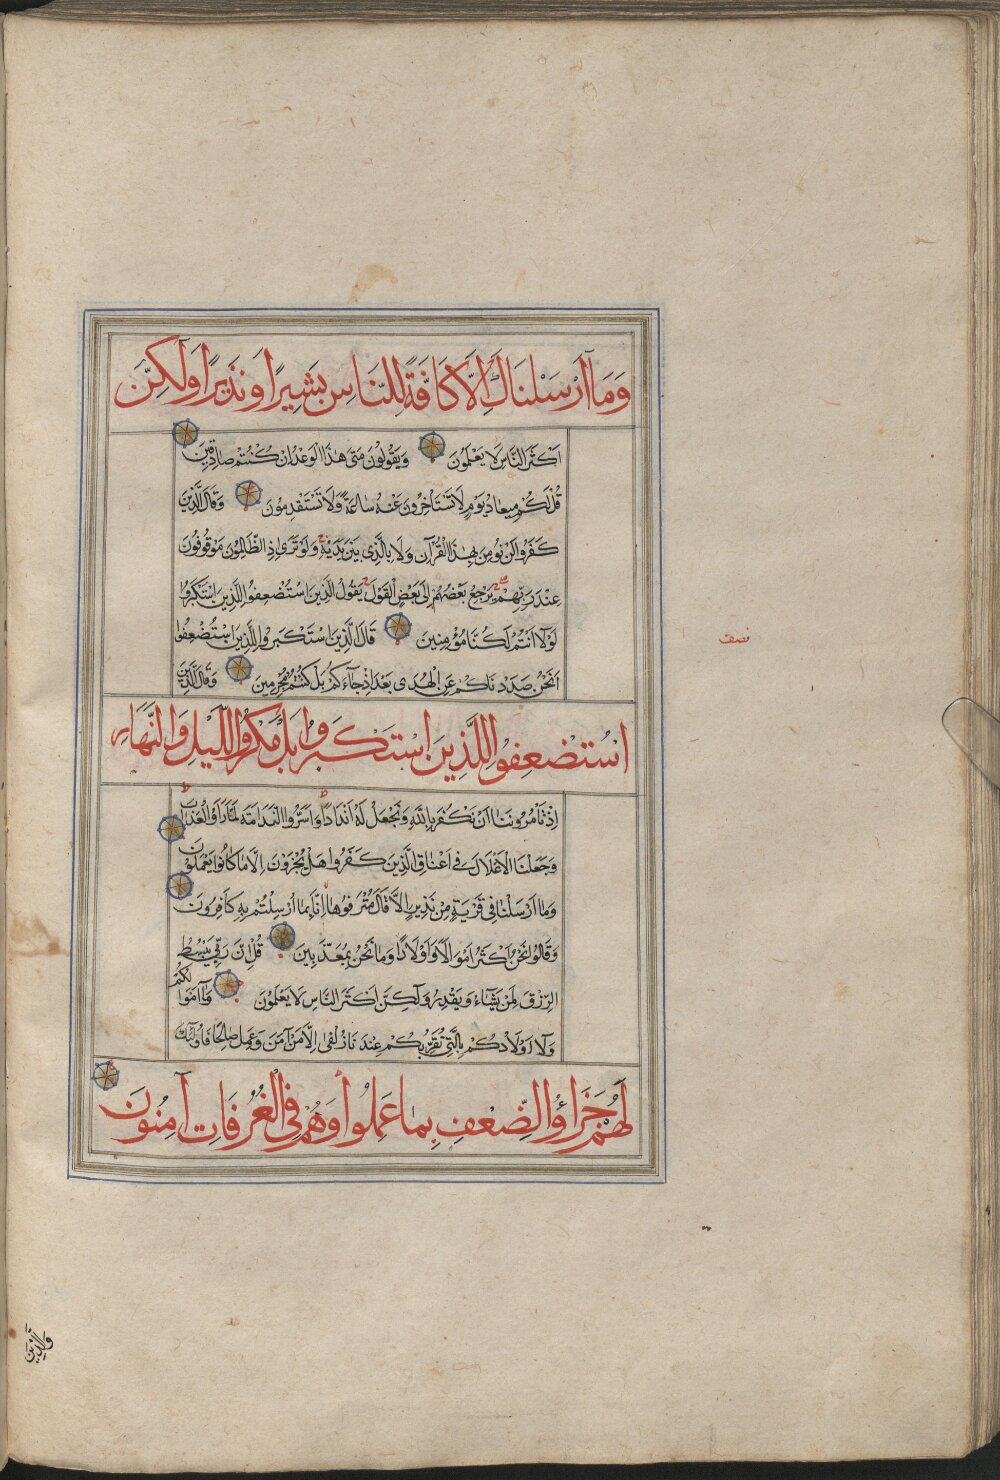 وَمَآ اَرْسَلْنَاكَ اِلَّا كَافَّةً لِلنَّاسِ بَشِيرًا وَنَذِيرًا وَلٰكِنَّ
اَكْثَرَ النَّاسِ لَا يَعْلَمُونَ وَيَقُولُونَ مَتٰى هٰذَا الْوَعْدُ اِنْ كُنْتُمْ صَادِقِينَ
قُلْ لَكُمْ مِيعَادُ يَوْمٍ لَا تَسْتَأْخِرُونَ عَنْهُ سَاعَةً وَلَا تَسْتَقْدِمُونَ وَقَالَ الَّذِينَ
كَفَرُوا لَنْ نُؤْمِنَ بِهٰذَا الْقُرْآنِ وَلَا بِالَّذِي بَيْنَ يَدَيْهِ وَلَوْ تَرٰى اِذِ الظَّالِمُونَ مَوْقُوفُونَ
عِنْدَ رَبِّهِمْ يَرْجِعُ بَعْضُهُمْ اِلٰى بَعْضٍ الْقَوْلَ يَقُولُ الَّذِينَ اسْتُضْعِفُوا لِلَّذِينَ اسْتَكْبَرُوا
لَوْلَا اَنْتُمْ لَكُنَّا مُؤْمِنِينَ قَالَ الَّذِينَ اسْتَكْبَرُوا لِلَّذِينَ اسْتُضْعِفُوا
اَنَحْنُ صَدَدْنَاكُمْ عَنِ الْهُدٰى بَعْدَ اِذْ جَآءَكُمْ بَلْ كُنْتُمْ مُجْرِمِينَ وَقَالَ الَّذِينَ
نصف
اسْتُضْعِفُوا لِلَّذِينَ اسْتَكْبَرُوا بَلْ مَكْرُ اللَّيْلِ وَالنَّهَارِ
اِذْ تَأْمُرُونَنَا اَنْ نَكْفُرَ بِاللّٰهِ وَنَجْعَلَ لَهُ اَنْدَادًا وَاَسَرُّوا النَّدَامَةَ لَمَّا رَاَوُا الْعَذَابَ
وَجَعَلْنَا الْاَغْلَالَ فِي اَعْنَاقِ الَّذِينَ كَفَرُوا هَلْ يُجْزَوْنَ اِلَّا مَا كَانُوا يَعْمَلُونَ
وَمَا اَرْسَلْنَا فِي قَرْيَةٍ مِنْ نَذِيرٍ اِلَّا قَالَ مُتْرَفُوهَا اِنَّا بِمَا اُرْسِلْتُمْ بِهِ كَافِرُونَ
وَقَالُوا نَحْنُ اَكْثَرُ اَمْوَالًا وَاَوْلَادًا وَمَا نَحْنُ بِمُعَذَّبِينَ قُلْ اِنَّ رَبِّي يَبْسُطُ
الرِّزْقَ لِمَنْ يَشَآءُ وَيَقْدِرُ وَلٰكِنَّ اَكْثَرَ النَّاسِ لَا يَعْلَمُونَ وَمَآ اَمْوَالُكُمْ
وَلَآ اَوْلَادُكُمْ بِالَّتِي تُقَرِّبُكُمْ عِنْدَنَا زُلْفٰى اِلَّا مَنْ آمَنَ وَعَمِلَ صَالِحًا فَاُولٰئِكَ
لَهُمْ جَزَآؤُا الضِّعْفِ بِمَا عَمِلُوا وَهُمْ فِي الْغُرُفَاتِ آمِنُونَ
وَالَّذِينَ